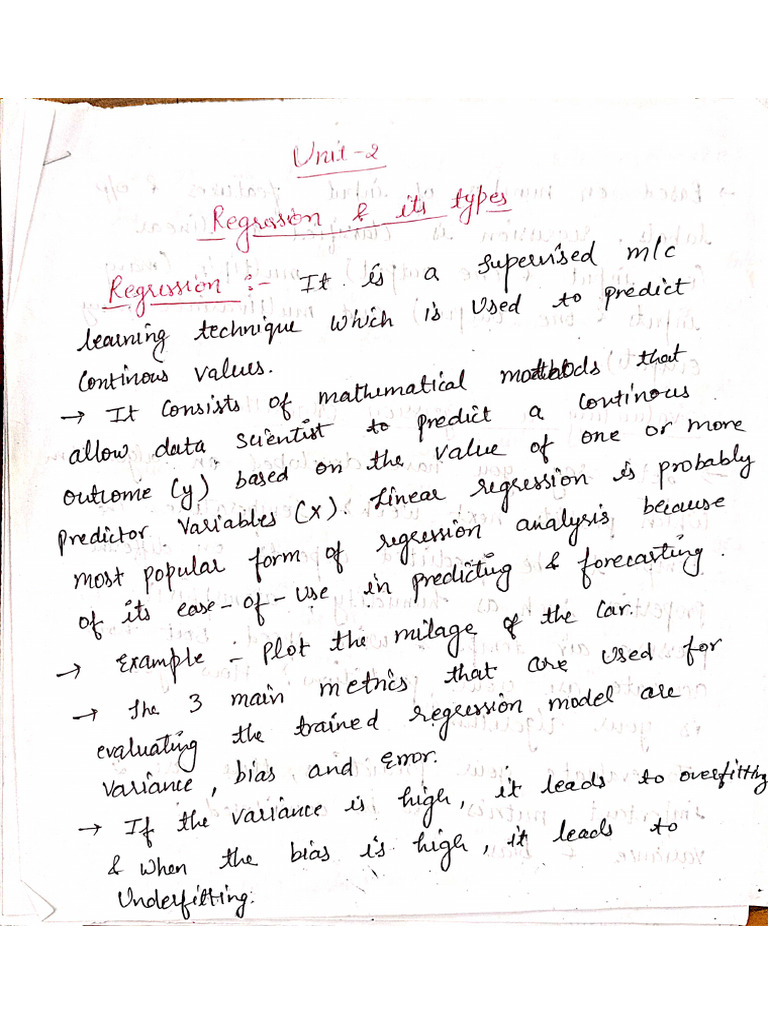 Unit-2
Regression & its types
Regression :- It is a supervised m/c
learning technique which is used to predict
continous values.
→ It consists of mathematical methods that
allow data scientist to predict a continous
outcome (y) based on the value of one or more
predictor variables (x). Linear regression is probably
most popular form of regression analysis because
of its ease-of-use in predicting & forecasting.
→ Example - Plot the milage of the car.
→ The 3 main metrics that are used for
evaluating the trained regression model are
variance, bias and error.
→ If the variance is high, it leads to overfitting
& when the bias is high, it leads to
Underfitting.